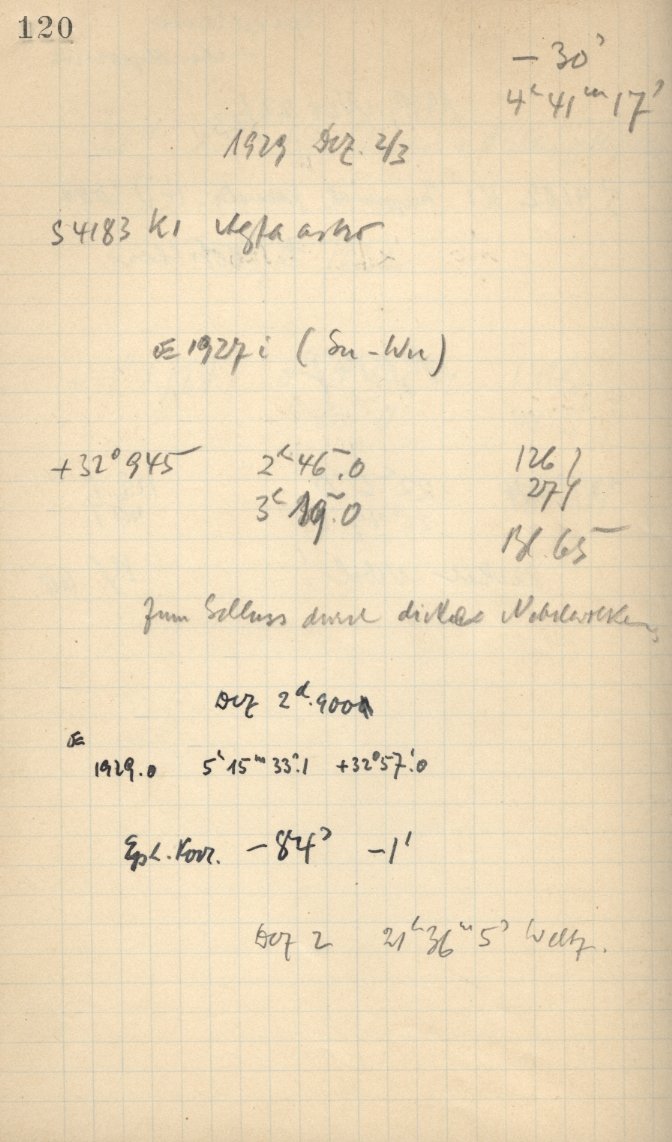 120
− 30ˢ
4ʰ 41ᵐ 17ˢ
1929 Dez. 2/3
S 4183 K1 Agfa astro
1927 i (Su-Wu)
+32° 945 2ʰ 46ᵐ.0 126
3ʰ 19ᵐ.0 27
Bl. 65
Zum Schluss durch dickes Nebelwolken
Dez 2ᵈ.900
Œ
1929.0 5ʰ 15ᵐ 33ˢ.1 +32° 57'.0
Eph. Korr. −84ˢ −1'
Dez 2 21ʰ 36ᵐ 5ˢ Weltz.